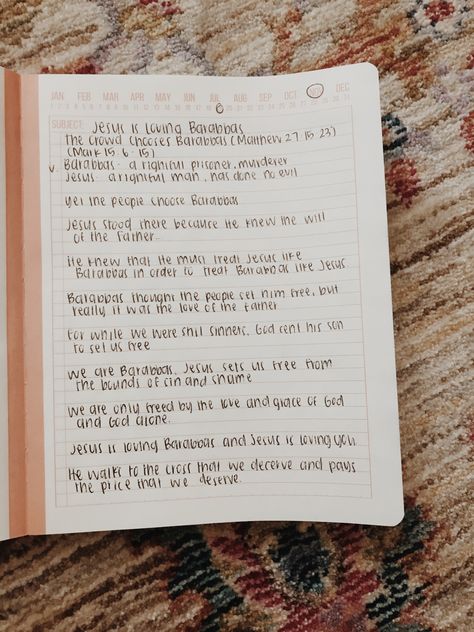 JAN FEB MAR APR MAY JUN JUL AUG SEP OCT NOV DEC
SUBJECT: Jesus is Loving Barabbas
The Crowd Chooses Barabbas (Matthew 27:15-23)
(Mark 15:6-15)
Barabbas- a rightful prisoner, murderer
Jesus- a rightful man, has done no evil
Yet the people choose Barabbas
Jesus stood there because He knew the will
of the Father...
He knew that He must treat Jesus like
Barabbas in order to treat Barabbas like Jesus
Barabbas thought the people set him free, but
really it was the love of the Father
For while we were still sinners, God sent his son
to set us free
We are Barabbas. Jesus sets us free from
the bounds of sin and shame
We are only freed by the love and grace of God
and God alone.
Jesus is loving Barabbas and Jesus is loving you.
He walks to the cross that we deserve and pays
the price that we deserve.